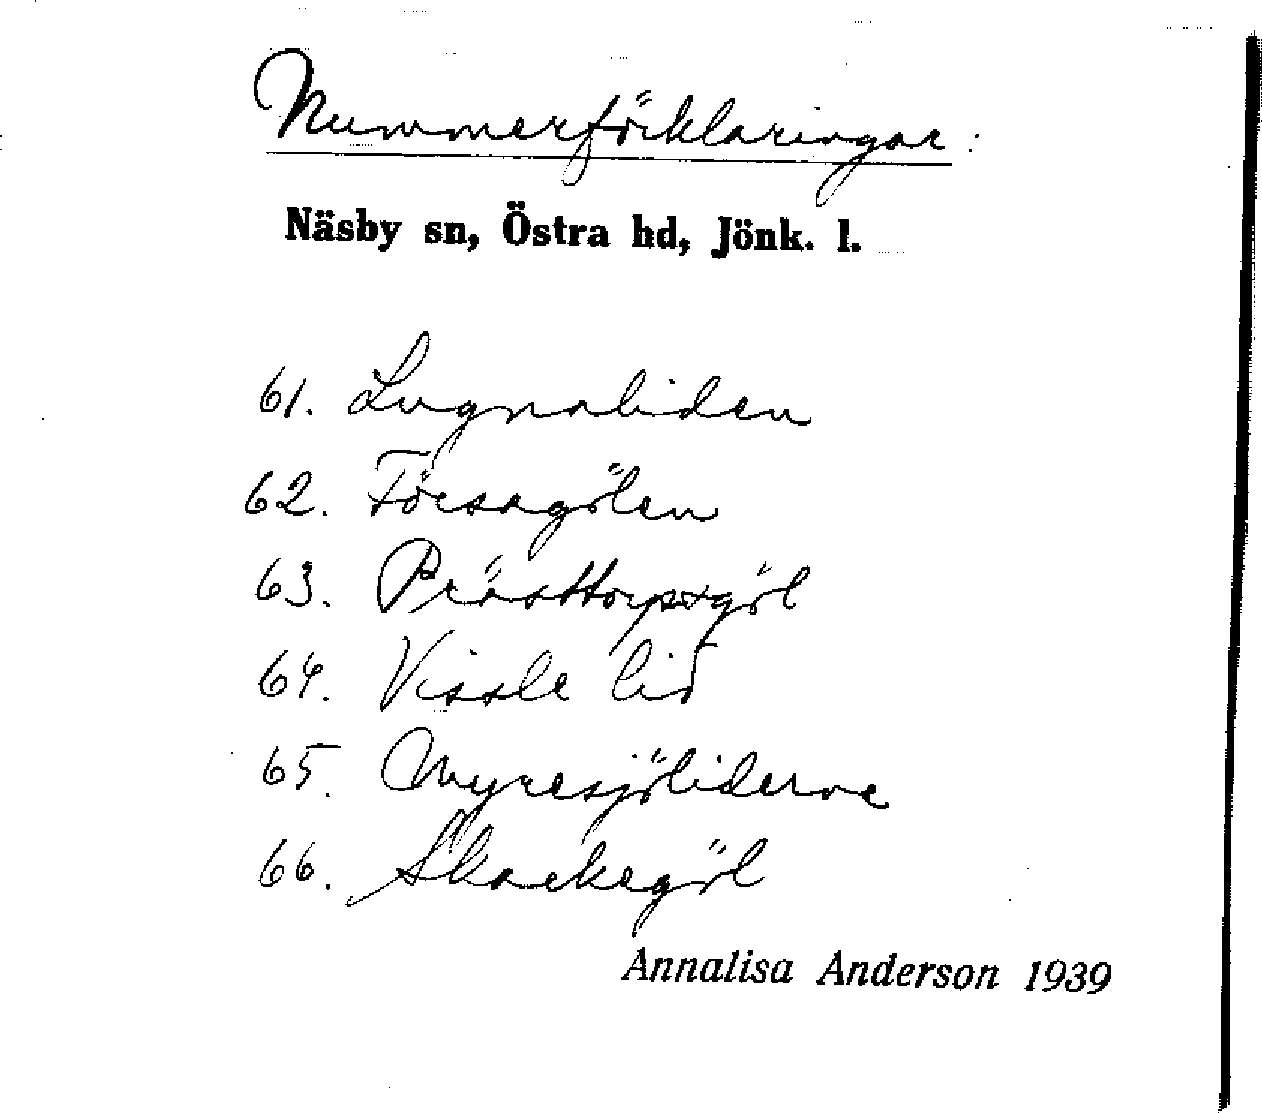 Nummerförklaringar:
Näsby sn, Östra hd, Jönk. l.
61. Lugnaliden
62. Försagölen
63. Prästtorpsgöl
64. Vissle lid
65. Myresjöliderna
66. Skackegöl
Annalisa Anderson 1939